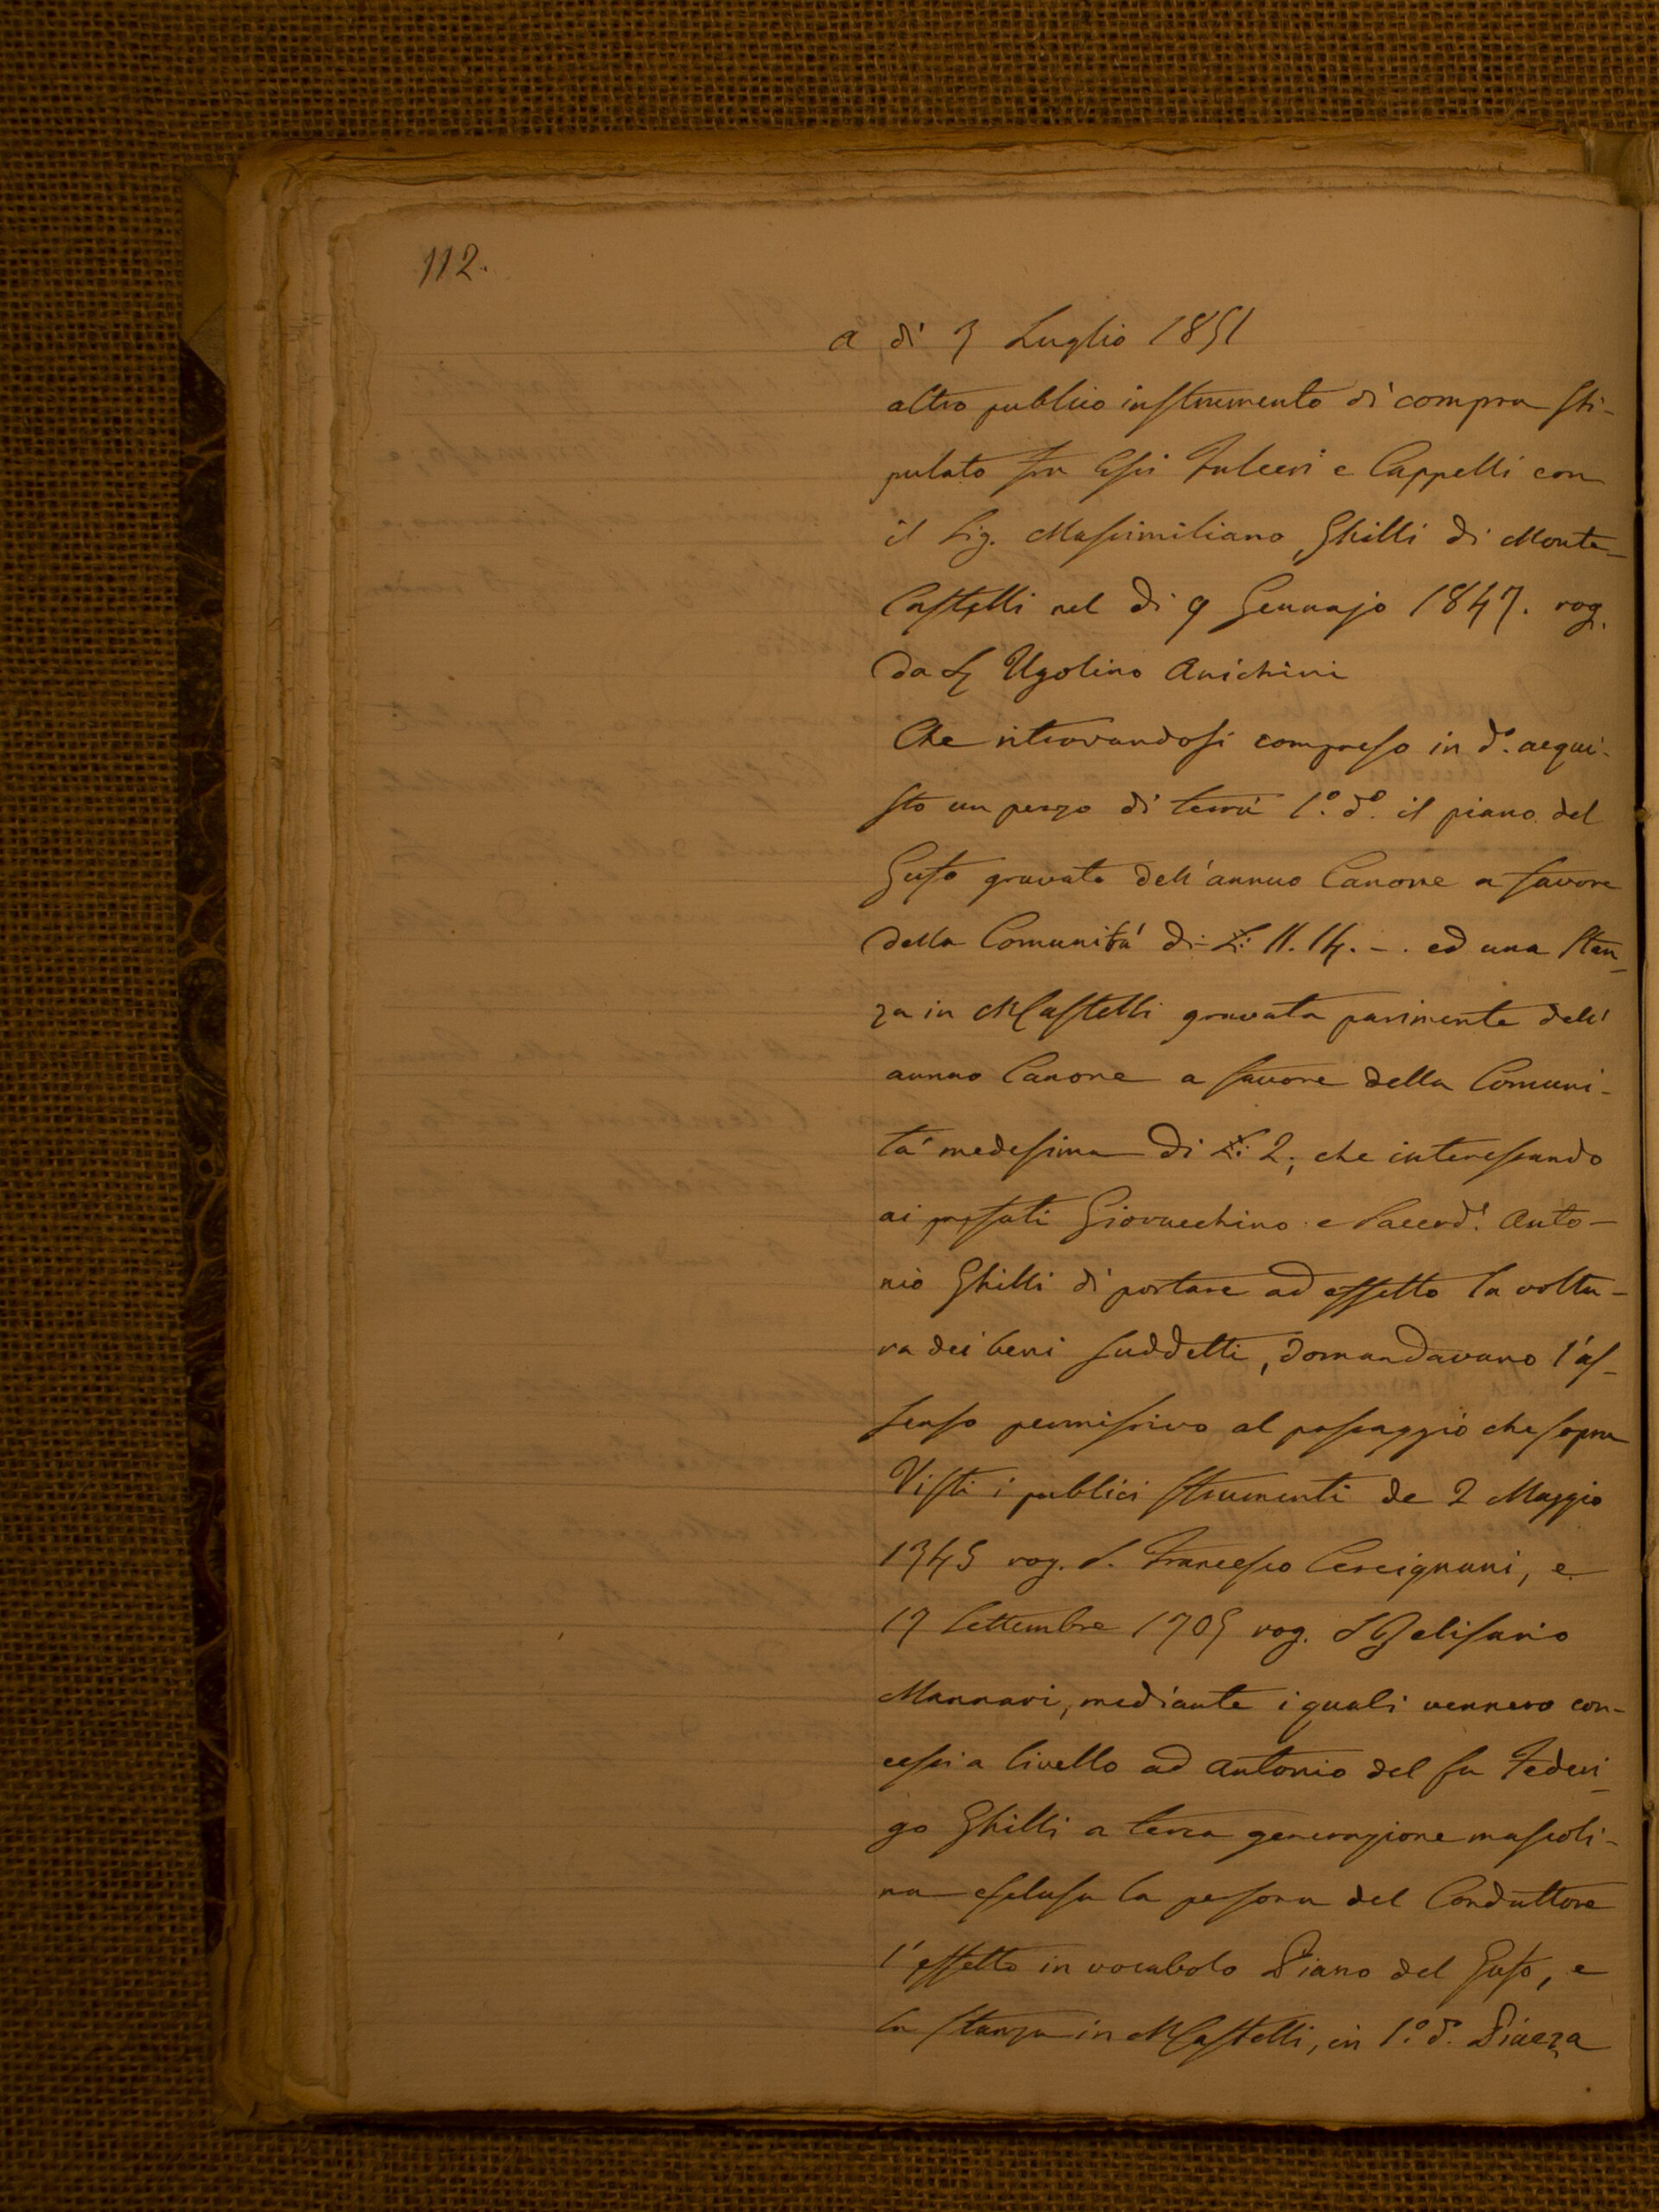 112.
a di 3 Luglio 1851
altro publico instrumento di compra sti-
pulato fra Essi Fulceri e Cappelli con
il Sig. Massimiliano Ghilli di Monte-
Castelli nel di 9 Gennajo 1847. rog.
da S. Ugolino Anichini
Che ritrovandosi compreso in d.º acqui-
sto un pezzo di terra l.º d.º il piano del
gravato dell'annuo Canone a favore
della Comunità di £: 11. 14. -. ed una Stan-
za in MCastelli gravata parimente dell'
annuo Canone a favore della Comuni-
tà medesima di £: 2; che interessando
ai prefati Giovacchino e Sacerd.e Anto-
nio Ghilli di portare ad effetto la voltu-
ra dei beni suddetti, domandavano l'as-
senso permissivo al passaggio che sopra
Visti i publici strumenti de 2 Maggio
1745 rog. S. Francesco Cercignani, e
17 Settembre 1705 rog. S Belisario
Mannari, mediante i quali vennero con-
cessi a livello ad Antonio del fu Federi-
go Ghilli a terza generazione mascoli-
na esclusa la persona del Conduttore
l'effetto in vocabolo Piano del, e
la stanza in MCastelli, in l.º d.º Piazza